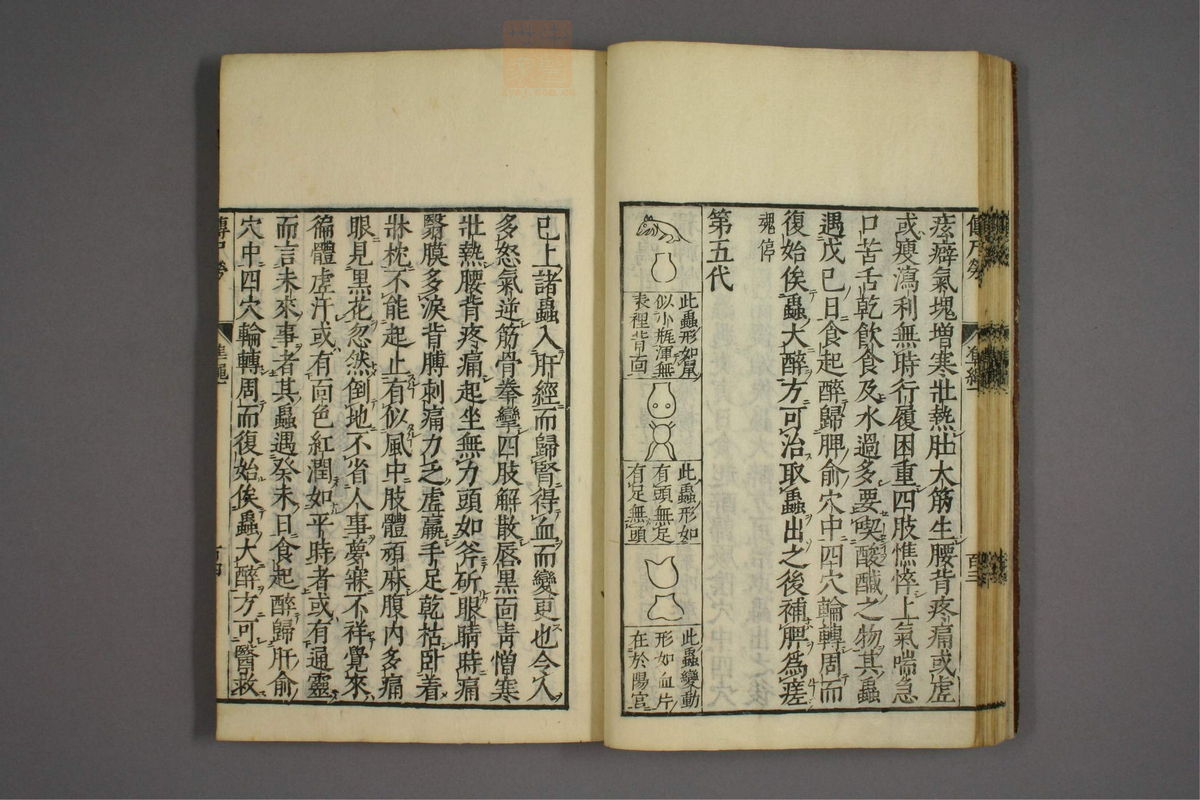 痃癖氣塊增寒壯熱肚大筋生腰背疼痛或虛
或瘦瀉利無時行履困重四肢憔悴上氣喘急
口苦舌乾飲食及水過多要喫酸醎之物其蟲
遇戊巳日食起醉歸脾俞穴中四穴輪轉周而
復始俟蟲大醉方可治取蟲出之後補脾爲瘥
魂停
第五代
此蟲形如鼠
似小瓶渾無
表裡背面
此蟲形如
有頭無足
有足無頭
此蟲變動
形如血片
在於陽宫
巳上諸蟲入肝經而歸腎得血而變更也令人
多怒氣逆筋骨拳攣四肢解散唇黑面青憎寒
壯熱腰背疼痛起坐無力頭如斧斫眼睛時痛
翳膜多淚背膊刺痛力乏虛羸手足乾枯卧着
牀枕不能起止有似風中肢體頑麻腹内多痛
眼見黑花忽然倒地不省人事夢寐不祥覺來
徧體虛汗或有面色紅潤如平時者或有通靈
而言未來事者其蟲遇癸未日食起醉歸肝俞
穴中四穴輪轉周而復始俟蟲大醉方可醫救